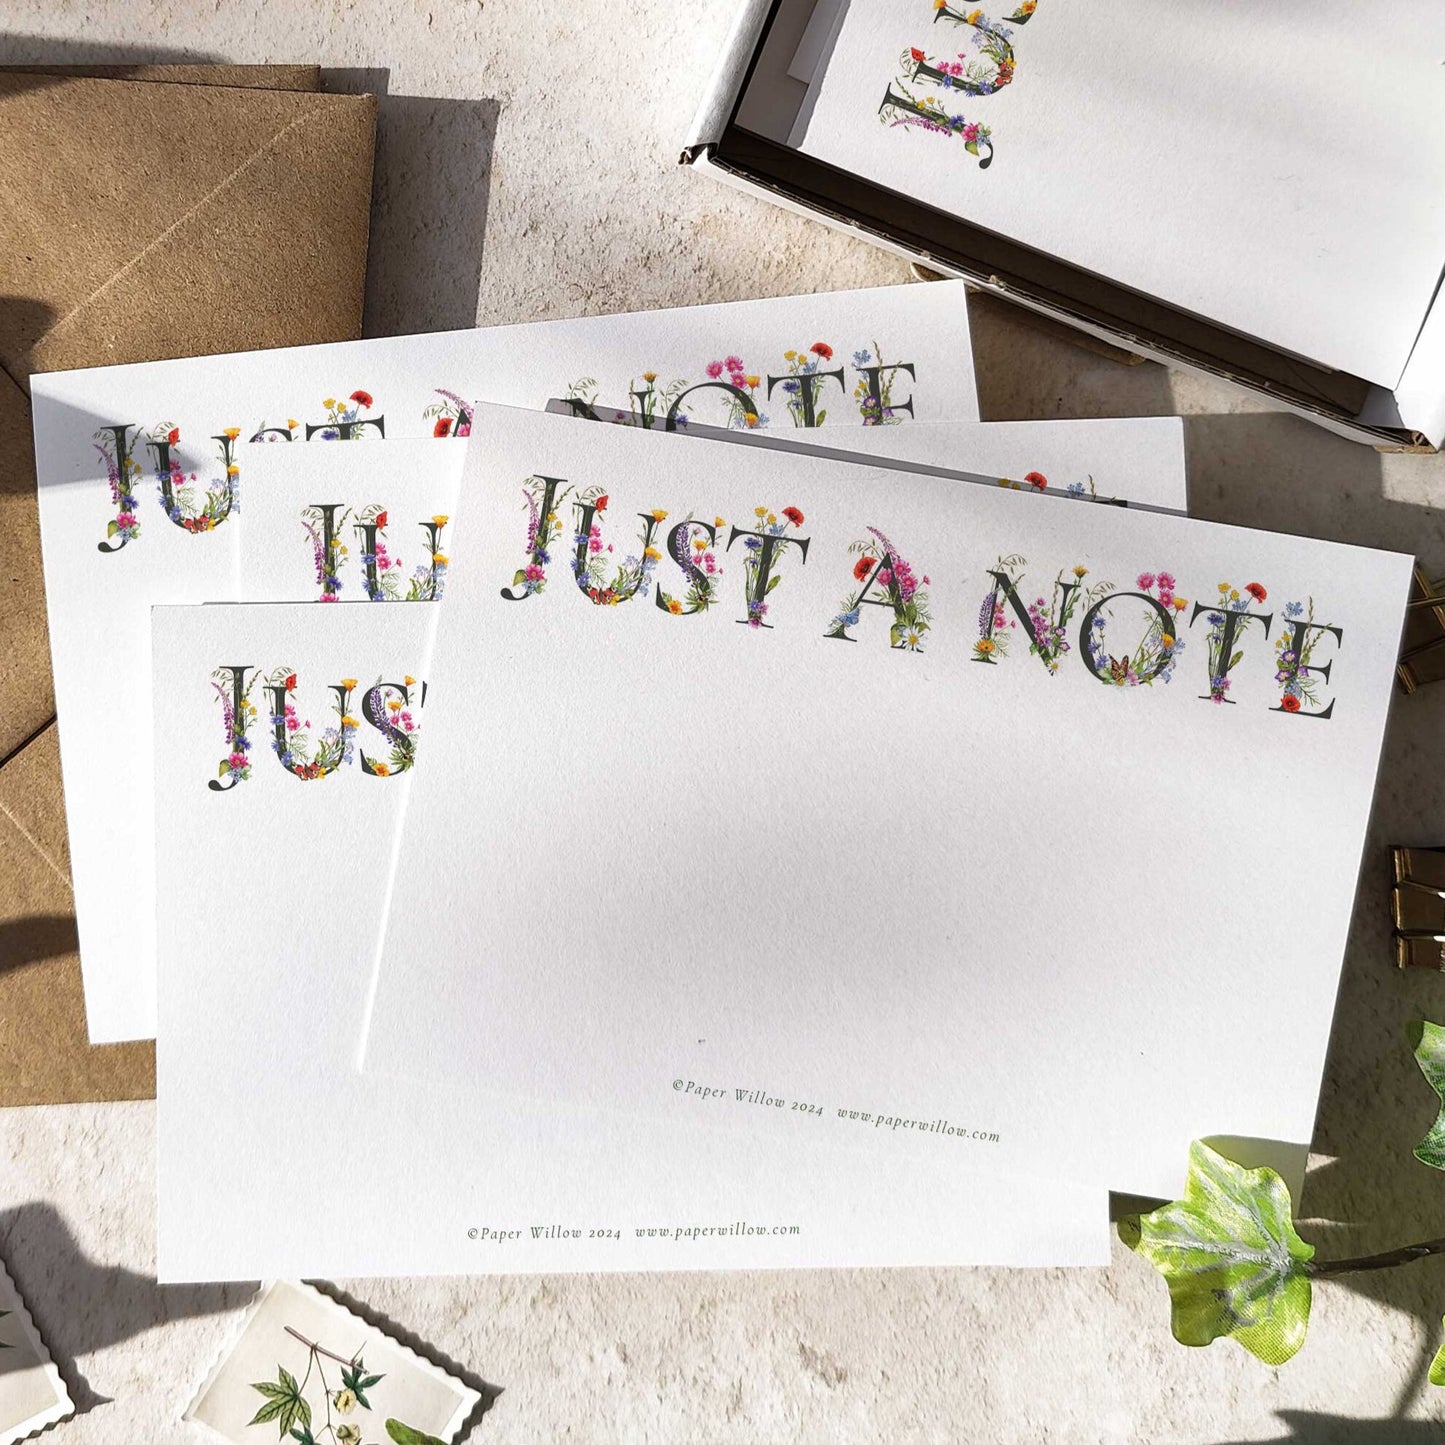 Jus
Just A Note
Ju
Just A Note
Jus
©Paper Willow 2024 www.paperwillow.com
©Paper Willow 2024 www.paperwillow.com